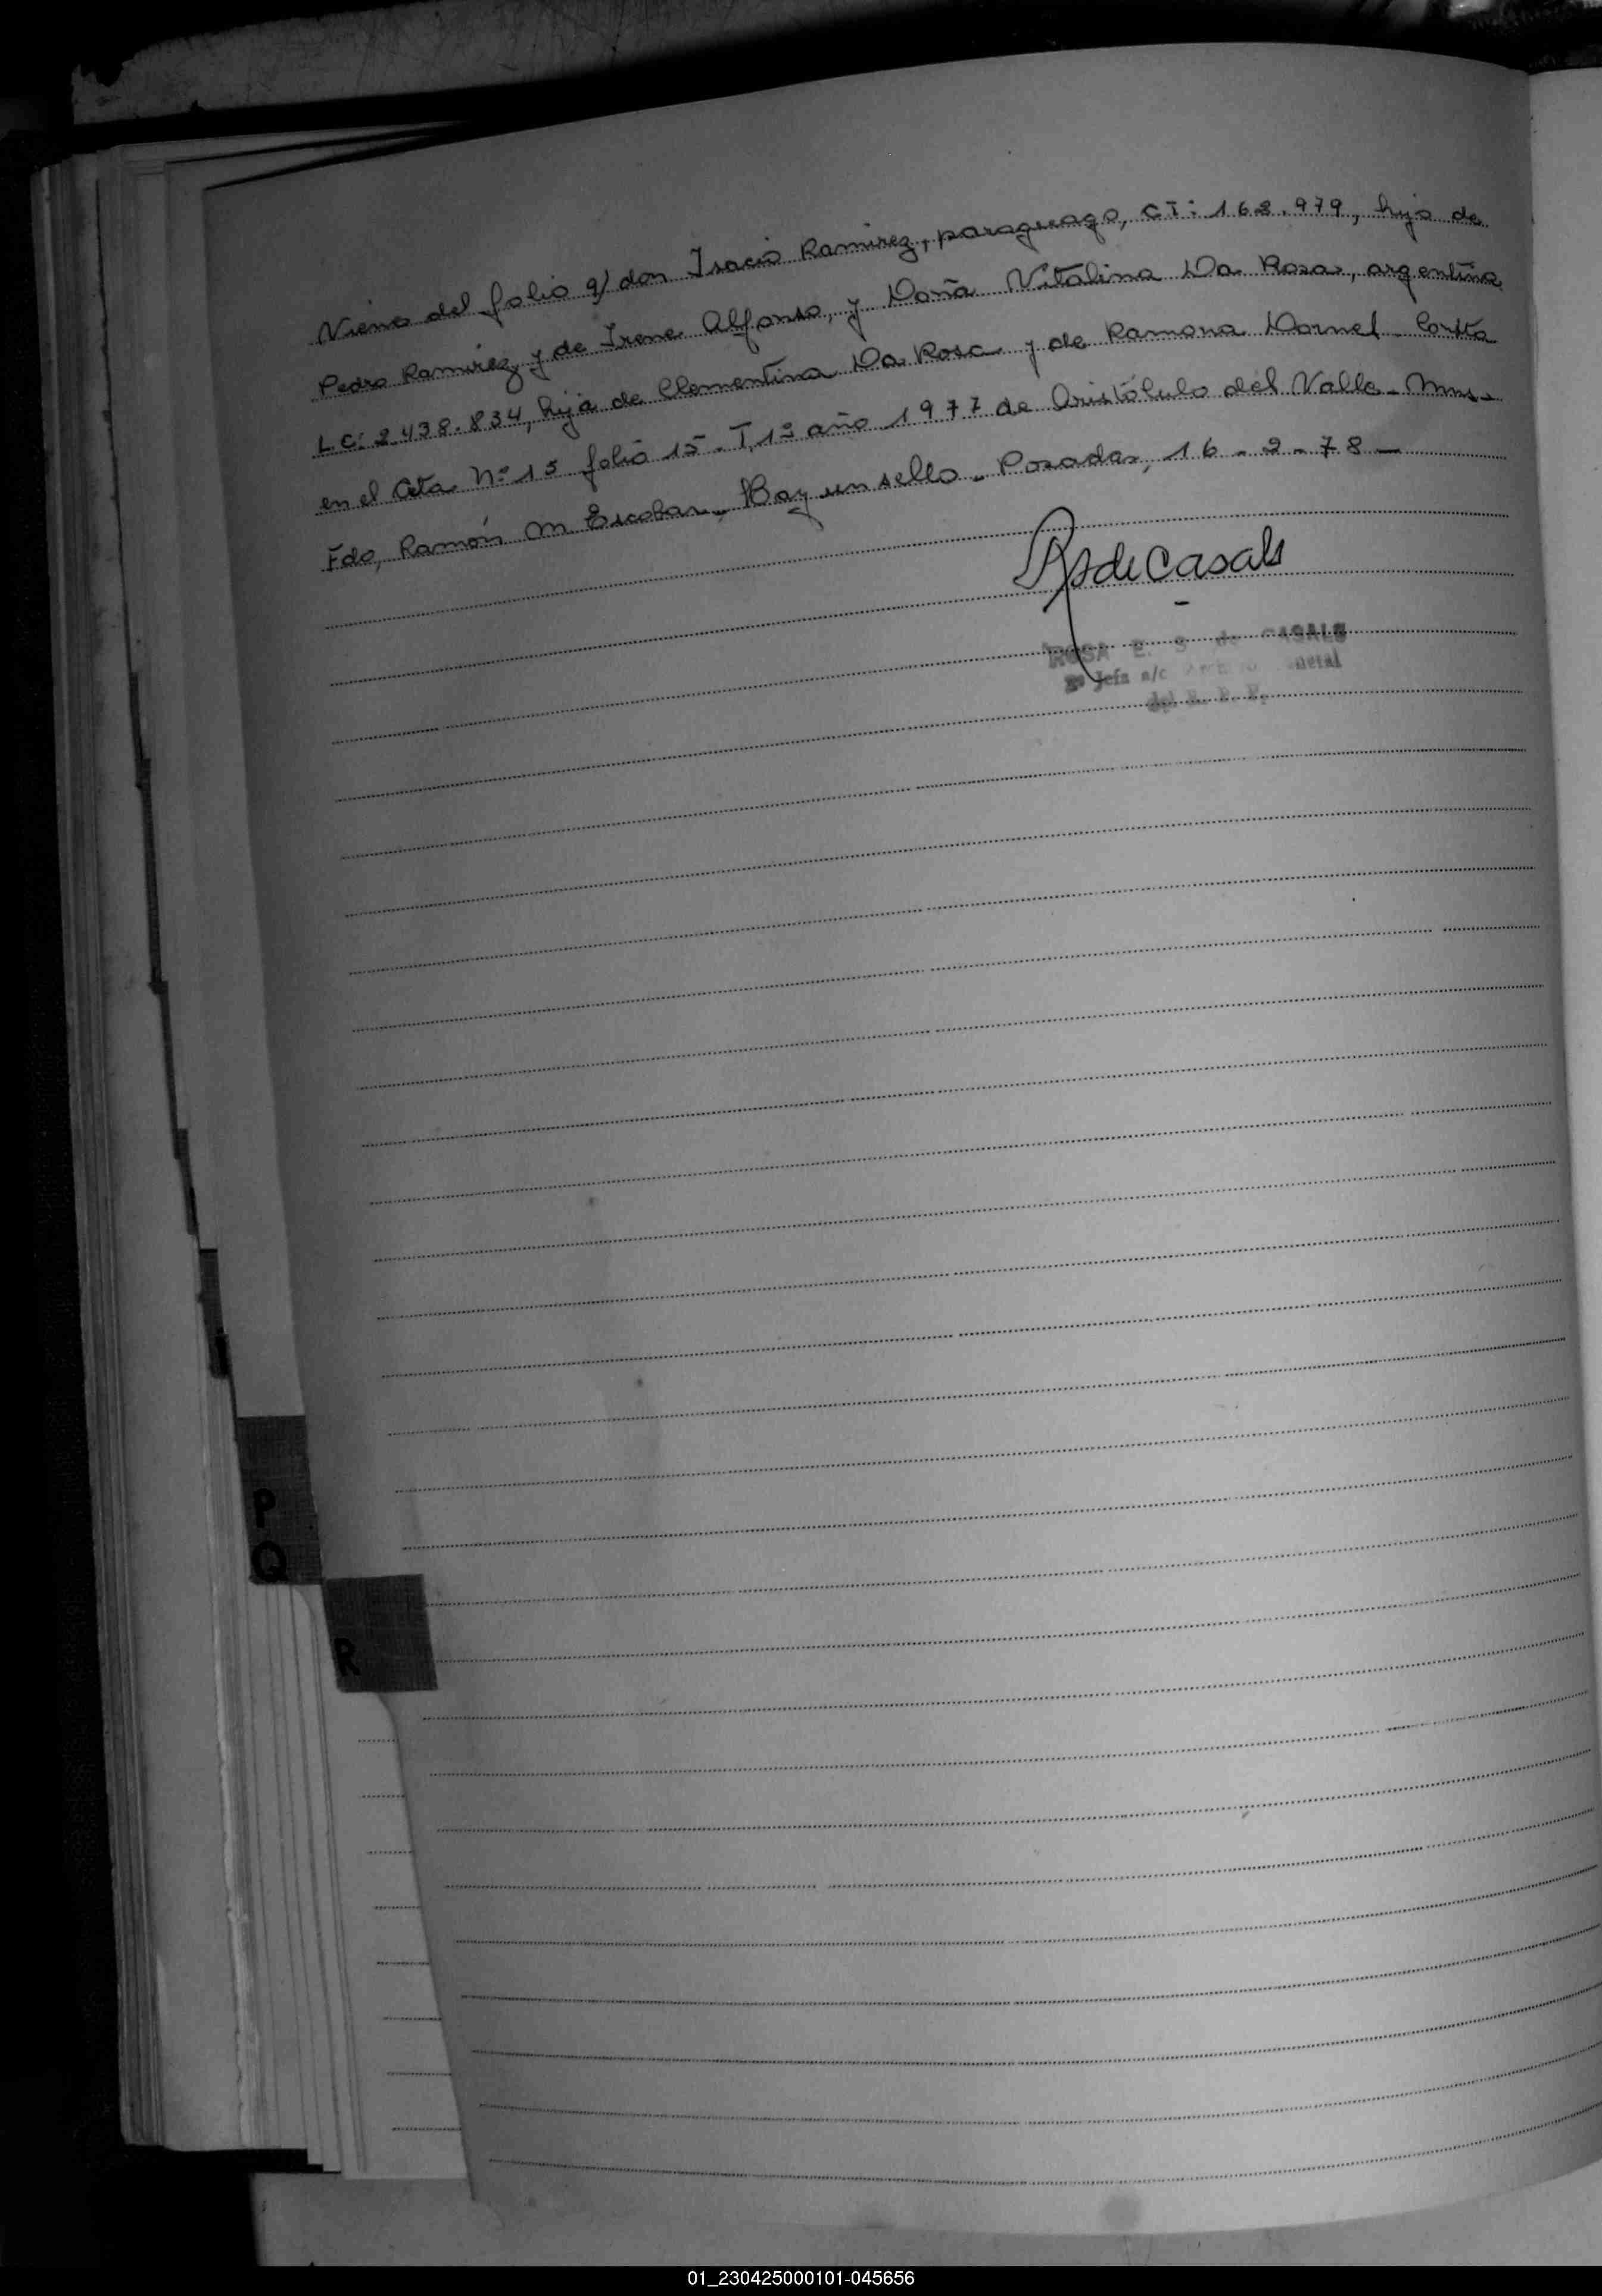 Viene del folio 9/ don Isacio Ramirez, paraguayo, CI: 168.979, hijo de
Pedro Ramirez y de Irene Alfonso, y Doña Vitalina Da Rosa, argentina
L.C: 2.438.834, hija de Clementina Da Rosa y de Ramona Dornel - Consta
en el Acta Nº 15 folio 15 - T, 1º año 1977 de Aristóbulo del Valle - Mnes -
Fdo, Ramón M Escobar - Hay un sello - Posadas, 16 - 2 - 78 -
RSdeCasals
ROSA E. S. de CASALS
2ª Jefa a/c General
del R. P. P.
P
Q
R
01_230425000101-045656